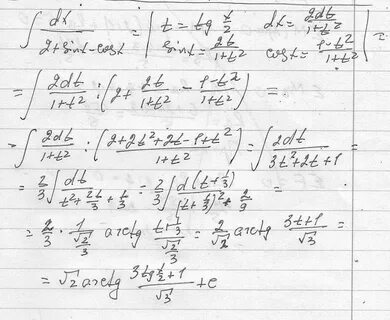 ∫ dx / (2+sint-cost) = | t = tg x/2   dx = 2dt/(1+t²)   sint = 2t/(1+t²)   cost = (1-t²)/(1+t²) | =
= ∫ 2dt/(1+t²) : (2 + 2t/(1+t²) - (1-t²)/(1+t²)) =
= ∫ 2dt/(1+t²) : ((2+2t²+2t-1+t²)/(1+t²)) = ∫ 2dt/(3t²+2t+1) =
= 2/3 ∫ dt/(t²+2t/3+1/3) = 2/3 ∫ d(t+1/3)/((t+1/3)²+2/9) =
= 2/3 · 1/(√2/3) arctg (t+1/3)/(√2/3) = 2/√2 arctg (3t+1)/√3 =
= √2 arctg (3tg x/2+1)/√3 + c